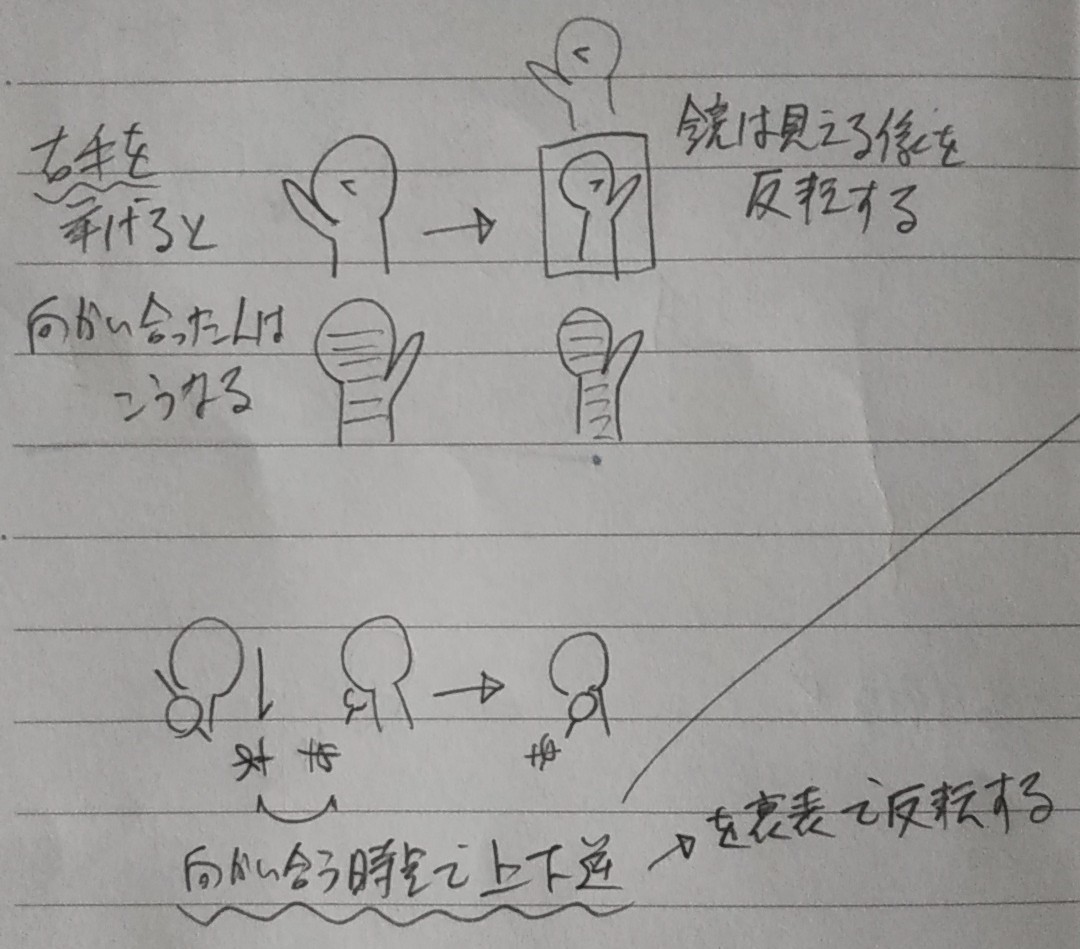 右手を
挙げると
鏡は見える像を
反転する
向かい合った人は
こうなる
向かい合う時点で上下逆
を裏表で反転する